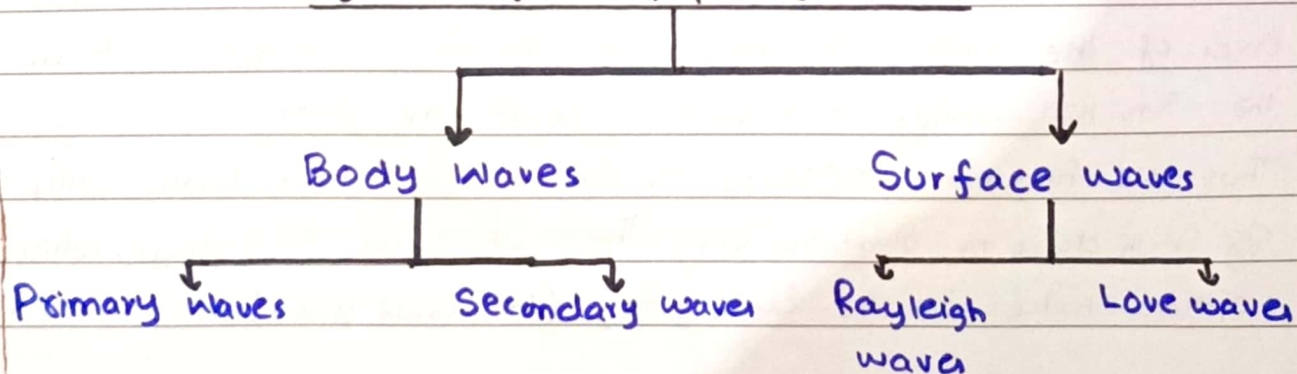 Body Waves Surface waves
Primary Waves Secondary waves Rayleigh Love waves
waves